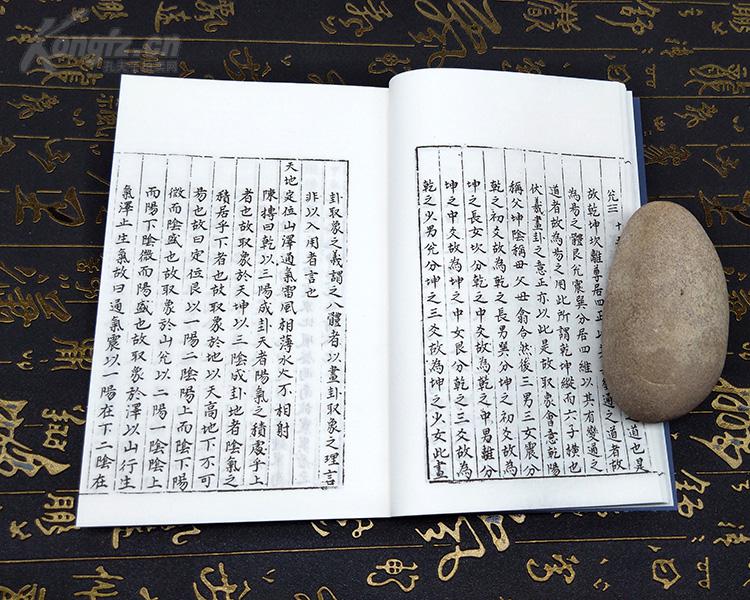 Kongfz.cn
孔夫子旧书网
兊三 十三
道也是
故乾坤坎離尊居四正
變通之道者故
為昜之體艮兊震巽分居四維以其有變通之
道者故為昜之用此所謂乾坤縱而六子橫也
伏羲畫卦之意正亦以此是故取象會意乾陽
稱父坤陰稱母父母翕合然後三男三女震分
乾之初爻故為乾之長男巽分坤之初爻故為
坤之長女坎分乾之中爻故為乾之中男離分
坤之中爻故為坤之中女艮分乾之三爻故為
乾之少男兊分坤之三爻故為坤之少女此畫
卦取象之義謂之八體者以畫卦取象之理言
非以入用者言也
天地定位山澤通氣雷風相薄水火不相射
陳摶曰乾以三陽成卦天者陽氣之積處乎上
者也故取象於天坤以三陰成卦地者陰氣之
積居乎下者也故取象於地以天高地下不可
昜也故曰定位艮以一陽二陰陽上而陰下陽
微而陰盛也故取象於山兊以二陽一陰陰上
而陽下陰微而陽盛也故取象於澤以山行生
氣澤止生氣故曰通氣震以一陽在下二陰在